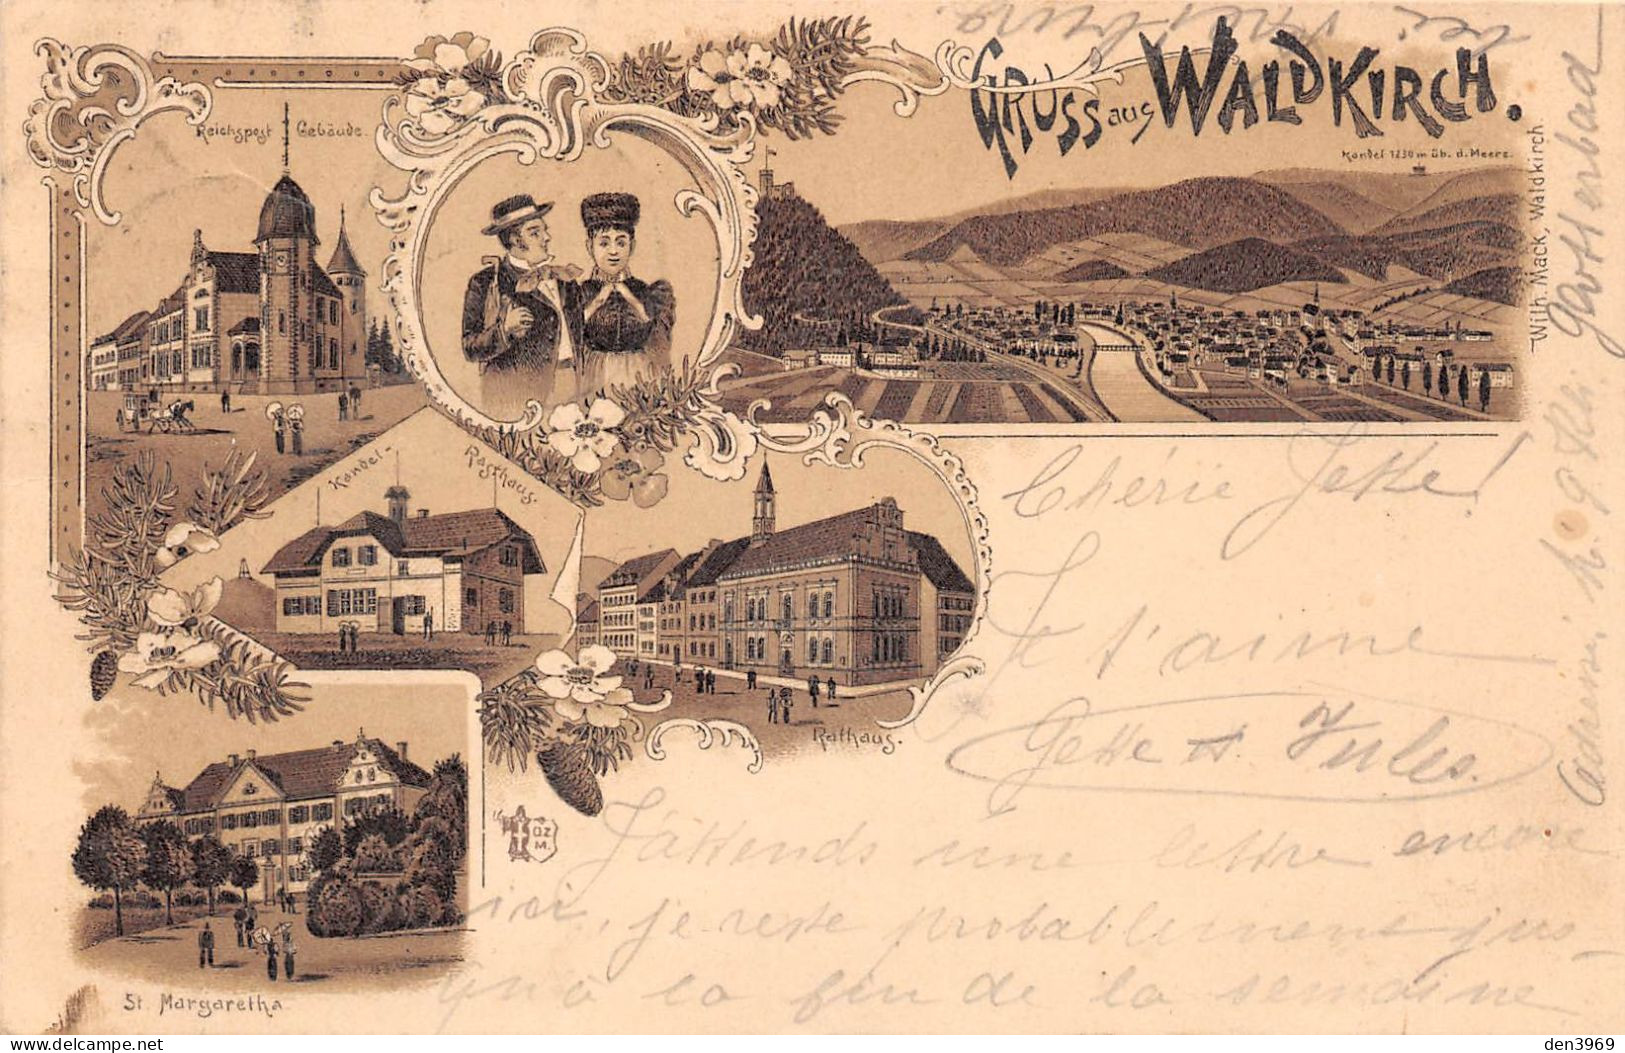 GRUSS aus WALDKIRCH.
Kandel 1230 m üb. d. Meere.
Reichspost Gebäude.
Kandel-Rasthaus.
Rathaus.
St. Margaretha
OZ
M.
Wilh. Mack, Waldkirch.
Chérie Jette!
Je t'aime
Gette Jules.
J'attends une lettre encore
ici, je reste probablement jus-
qu'à la fin de la semaine
delcampe.net
den3969